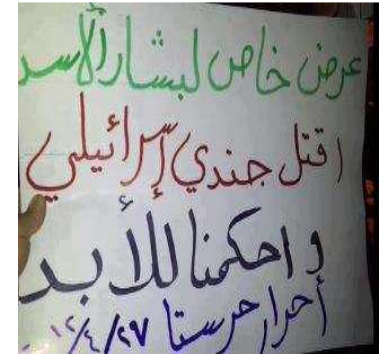 عرض خاص لبشار الأسد
اقتل جندي إسرائيلي
واحكمنا للأبد
أحرار حرستا ١٢/٤/٢٧